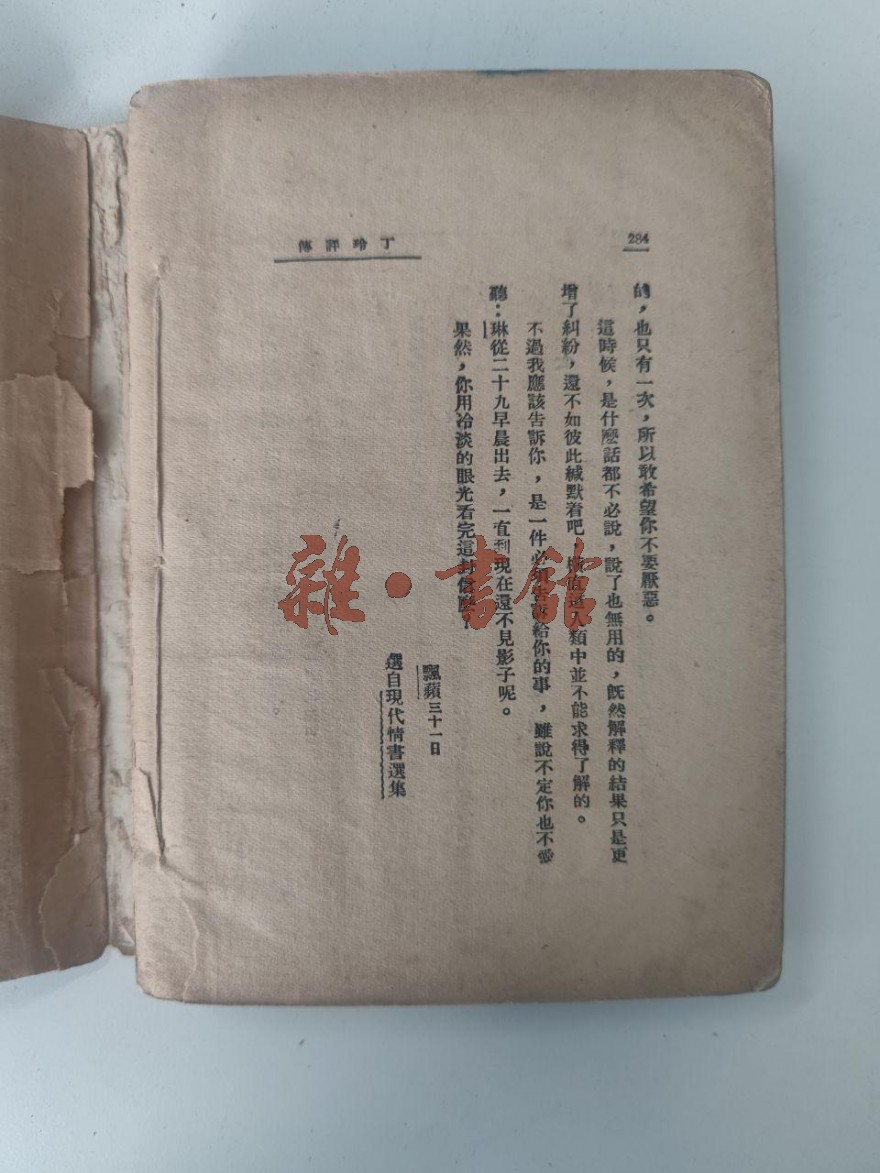 284
丁玲評傳
的，也只有一次，所以敢希望你不要厭惡。
這時候，是什麼話都不必說，說了也無用的，旣然解釋的結果只是更
增了糾紛，還不如彼此緘默着吧 人類中並不能求得了解的。
不過我應該告訴你，是一件必須告訴給你的事，雖說不定你也不愛
聽：琳從二十九早晨出去，一直到現在還不見影子呢。
果然，你用冷淡的眼光看完這封信麼？
飄蘋三十一日
選自現代情書選集
雜·書館